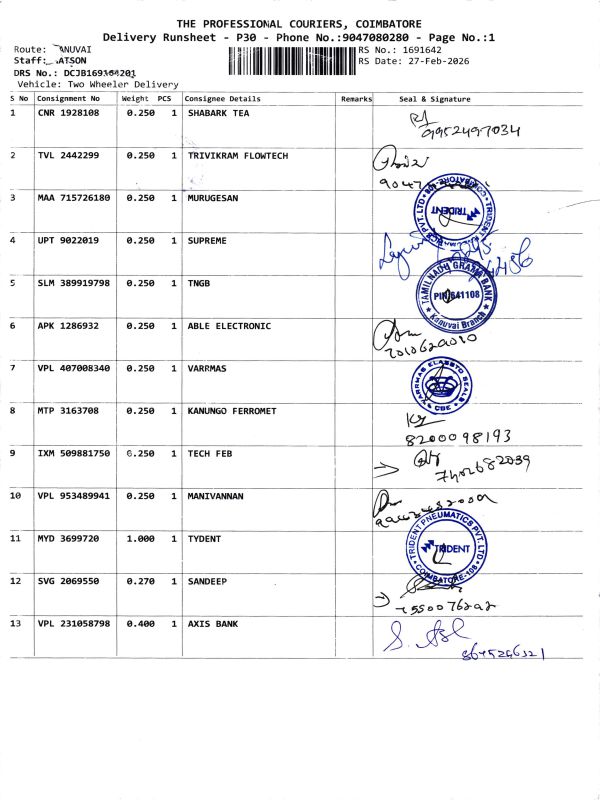 THE PROFESSIONAL COURIERS, COIMBATORE
Delivery Runsheet - P30 - Phone No.:9047080280 - Page No.:1
Route: ANUVAI
RS No.: 1691642
Staff: ATSON
RS Date: 27-Feb-2026
DRS No.:
Vehicle: Two Wheeler Delivery
S No Consignment No Weight PCS Consignee Details Remarks Seal & Signature
1 CNR 1928108 0.250 1 SHABARK TEA
9952497034
2 TVL 2442299 0.250 1 TRIVIKRAM FLOWTECH
3 MAA 715726180 0.250 1 MURUGESAN
TRIDENT
4 UPT 9022019 0.250 1 SUPREME
5 SLM 389919798 0.250 1 TNGB
TAMIL NADU GRAMA BANK
PIN 641108
Kanuvai Branch
6 APK 1286932 0.250 1 ABLE ELECTRONIC
7 VPL 407008340 0.250 1 VARRMAS
VARRMAS ELASSTO SEALS
CBE
8 MTP 3163708 0.250 1 KANUNGO FERROMET
8200098193
9 IXM 509881750 0.250 1 TECH FEB
10 VPL 953489941 0.250 1 MANIVANNAN
11 MYD 3699720 1.000 1 TYDENT
TRIDENT PNEUMATICS PVT. LTD
TRIDENT
COIMBATORE-108
12 SVG 2069550 0.270 1 SANDEEP
13 VPL 231058798 0.400 1 AXIS BANK